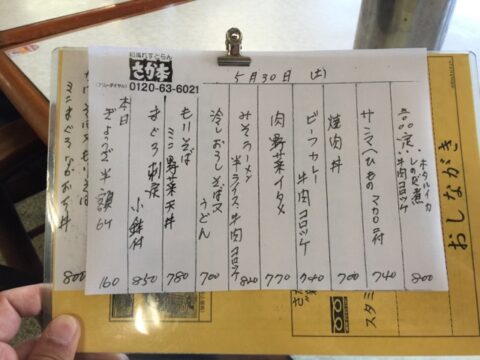 和風れすとらん
さかき本
フリーダイヤル
0120-63-6021
5月30日 (土)
おしながき
ホタルイカ
牛肉コロッケ
800
サンマひもの マカロニ付
740
焼肉丼
700
ビーフカレー
牛肉コロッケ
740
肉野菜イタメ
770
みそラーメン
半ライス 牛肉コロッケ
820
冷しおろしそば又
うどん
700
もりそば
ミニ野菜天丼
780
まぐろ刺定
小鉢付
850
本日
ぎょうざ半額
160
800
スタミ